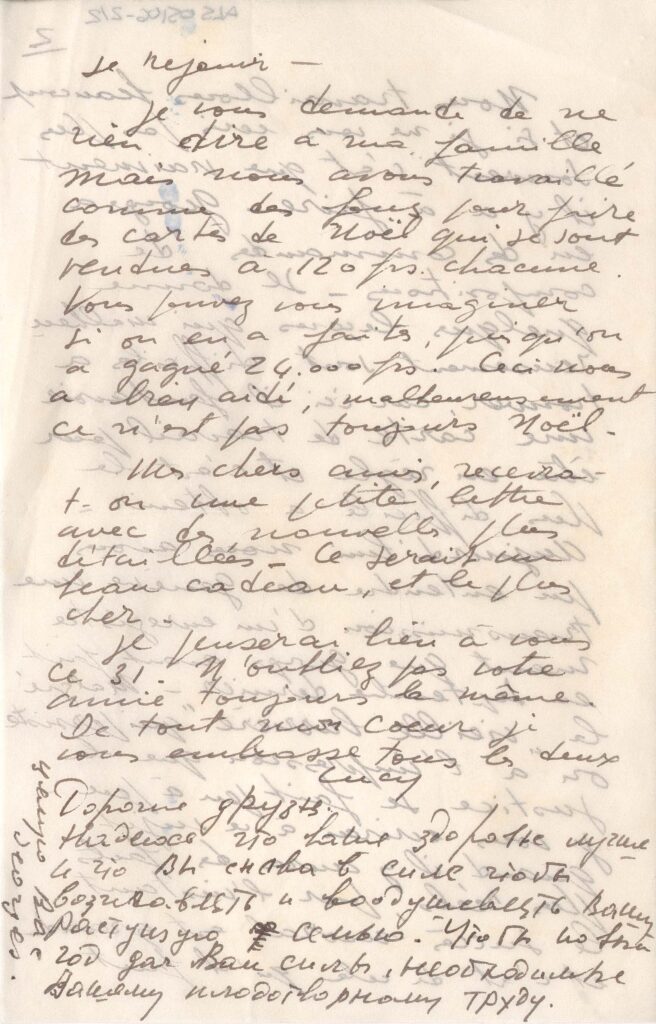 2
se réjouir —
Je vous demande de ne
rien dire à ma famille
mais nous avons travaillé
comme des fous pour faire
des cartes de Noël qui se sont
vendues à 120 frs. chacune.
Vous pouvez vous imaginer
si on en a faites, puisqu'on
a gagné 24.000 frs. Ceci nous
a bien aidé, malheureusement
ce n'est pas toujours Noël.
Mes chers amis, recevra-
t-on une petite lettre
avec des nouvelles plus
détaillées — Ce serait un
beau cadeau, et le plus
cher.
Je penserai bien à vous
ce 31. N'oubliez pas votre
amie toujours la même.
De tout mon coeur je
vous embrasse tous les deux
Lucy
Дорогие друзья.
Надеюсь что ваше здоровье лучше
и что Вы снова в силе чтобы
возглавлять и воодушевлять Вашу
растущую семью. Чтобы новый
год дал Вам силы, необходимые
Вашему плодотворному труду.
Целую Вас
Georges.